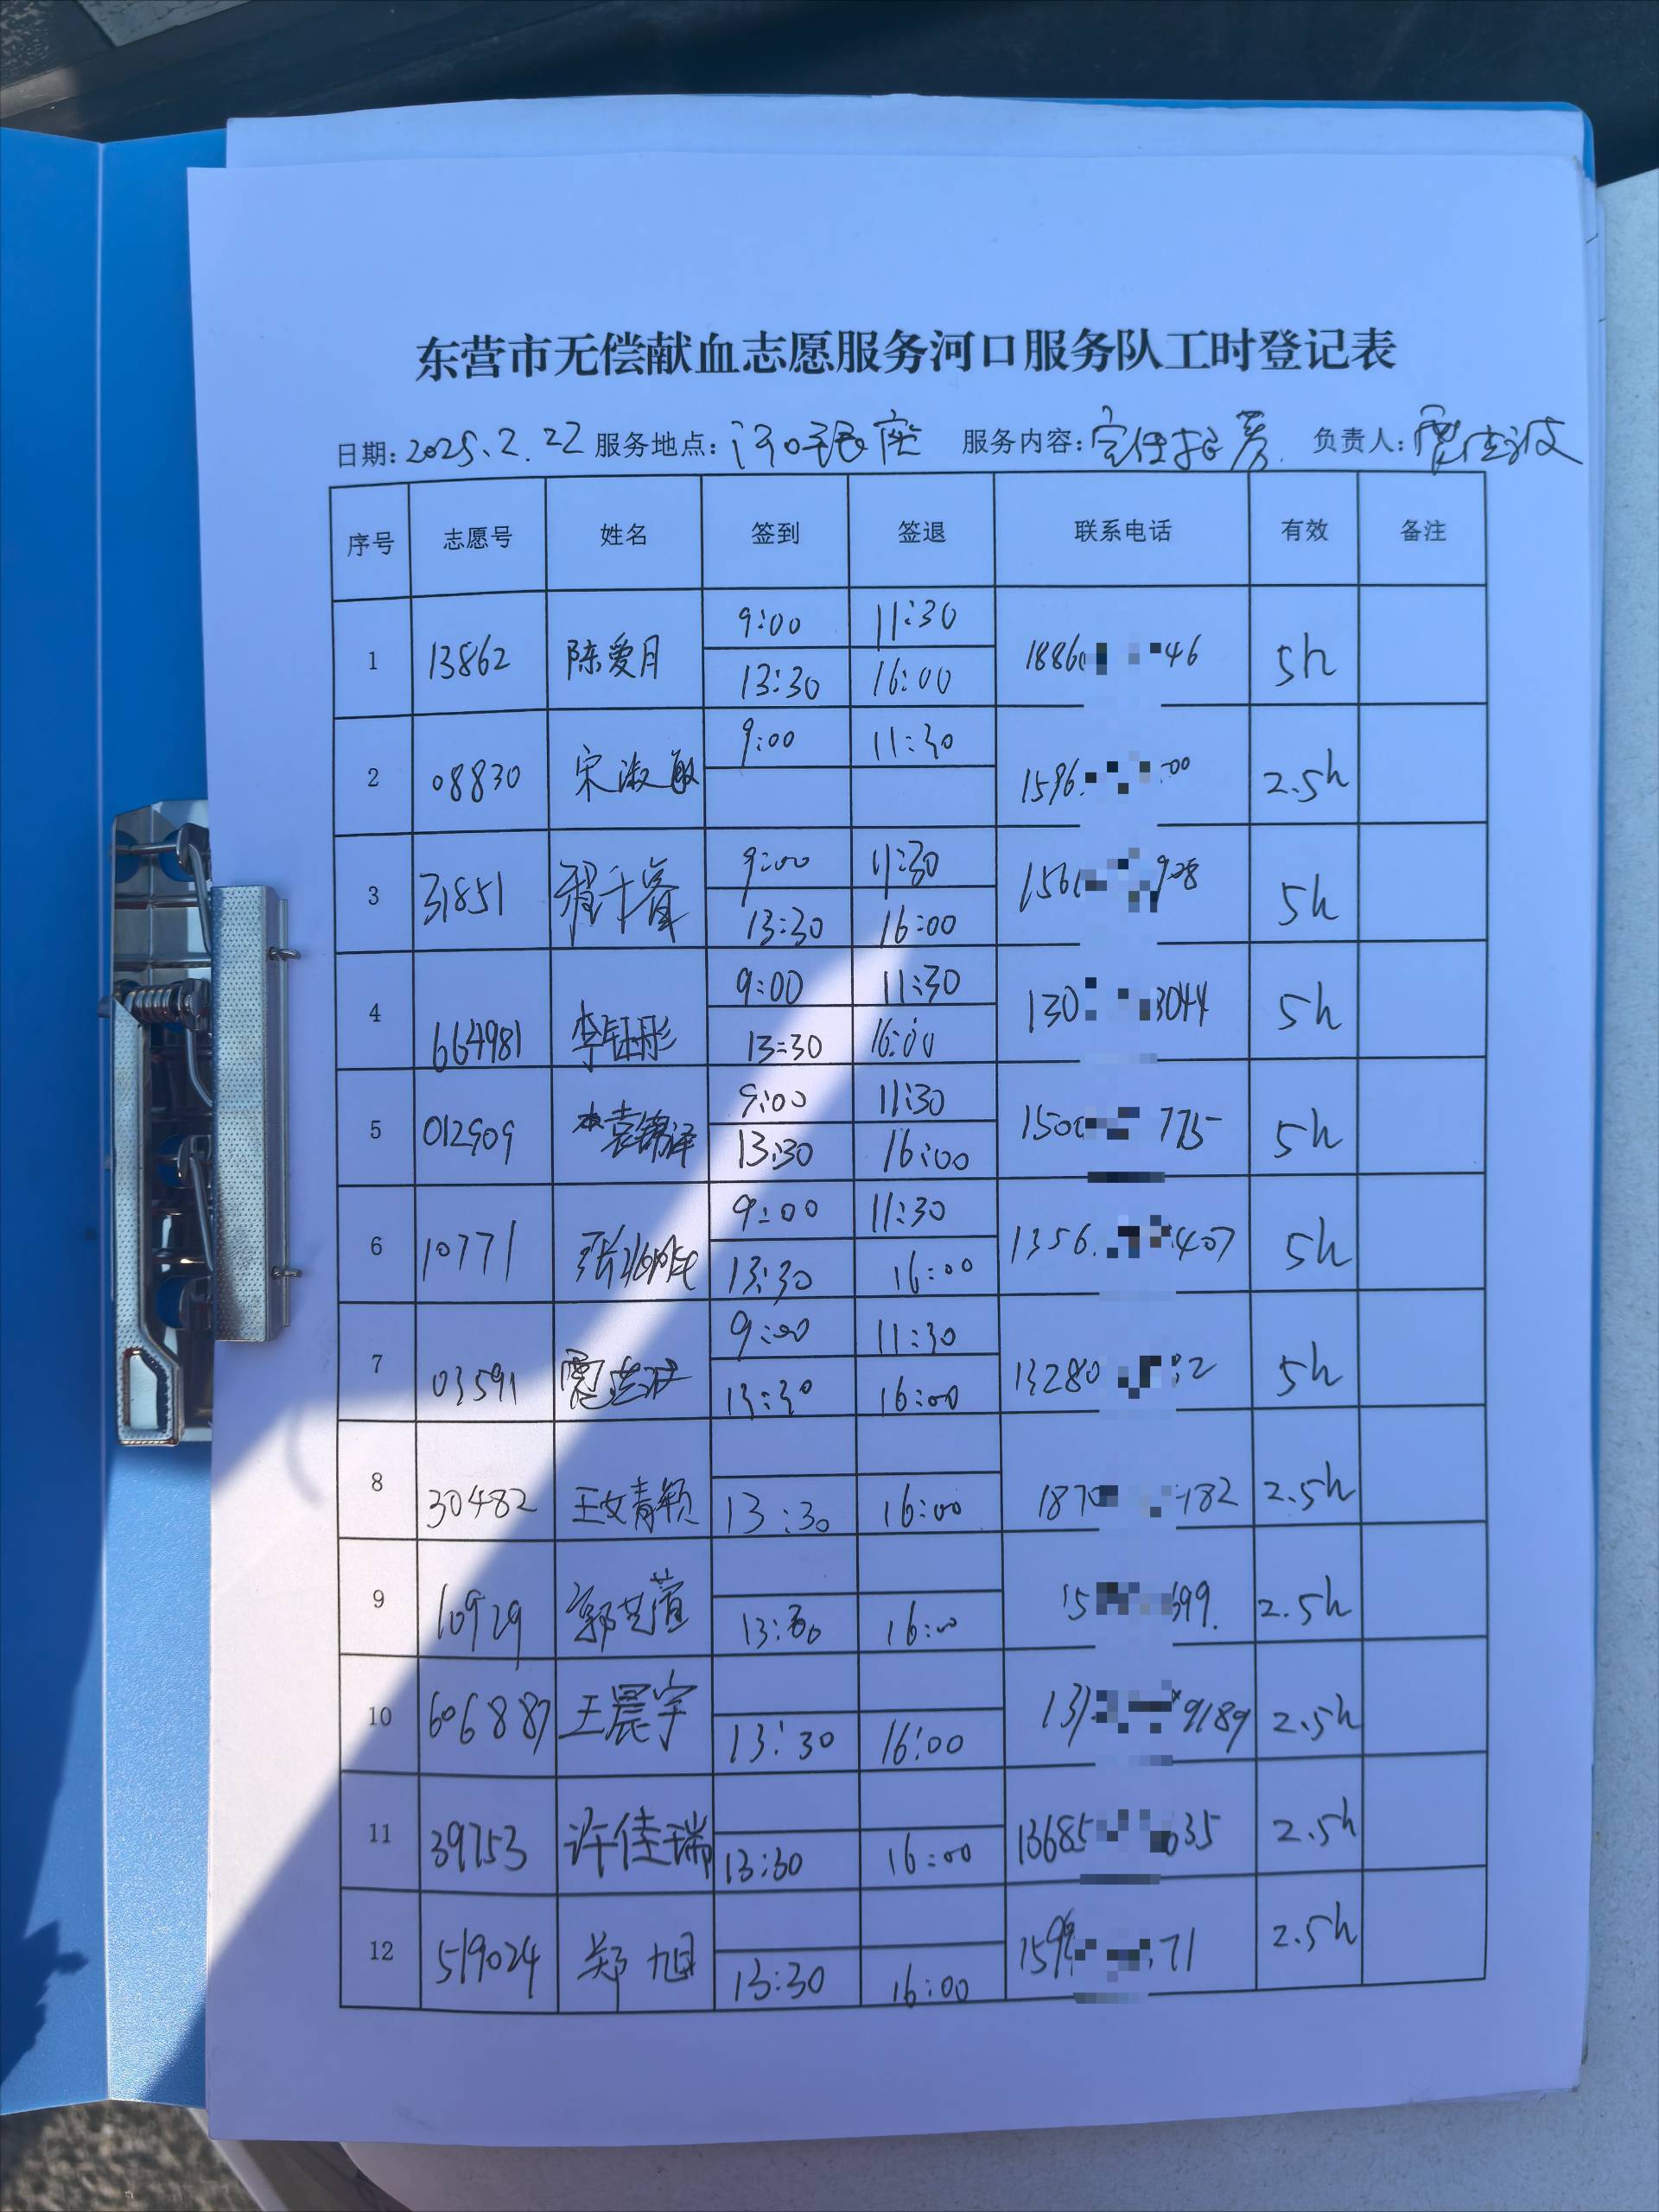 东营市无偿献血志愿服务河口服务队工时登记表
日期: 2025.2.22 服务地点: 河口银座 服务内容: 宣传招募 负责人:
序号 志愿号 姓名 签到 签退 联系电话 有效 备注
9:00 11:30
1 13862 陈爱月 1886 46 5h
13:30 16:00
9:00 11:30
2 08830 宋淑敏 1596 00 2.5h
9:00 11:30
3 31851 程千睿 156 908 5h
13:30 16:00
9:00 11:30
4 664981 李钰彤 130 3044 5h
13:30 16:00
9:00 11:30
5 012909 袁锦泽 150 775 5h
13:30 16:00
9:00 11:30
6 10771 1356 407 5h
13:30 16:00
9:00 11:30
7 03591 13280 32 5h
13:30 16:00
8 30482 王文青颖 13:30 16:00 187 182 2.5h
9 10929 郭芸萱 13:30 16:00 15 699. 2.5h
10 606887 王晨宇 13:30 16:00 13 9189 2.5h
11 39753 许佳瑞 13:30 16:00 13685 035 2.5h
12 519024 郑旭 13:30 16:00 159 71 2.5h